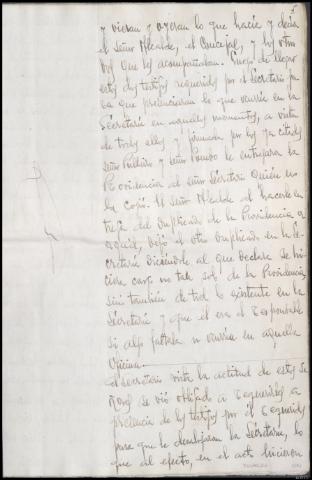 y vieran y oyeran lo que hacía y decía
el señor Alcalde, el Concejal, y los otros
dos que les acompañaban. Luego de llegar
estos dos testigos requeridos por el Secretario pa
ra que presenciaran lo que ocurría en la
Secretaría en aquellos momentos, a vista
de todos ellos y firmada por los ya citados
señor y señor le entregara la
Providencia al señor Secretario quien no
la cogió. El señor Alcalde al hacerle en
trega del duplicado de la Providencia a
aquél, dejó el otro duplicado en la Se
cretaría diciéndole al que declara se hi
ciera cargo no tan solo de la Providencia
sino también de todo lo existente en la
Secretaría y que él era el responsable
si algo faltaba u ocurría en aquella
Oficina.
El secretario vista la actitud de estos se
ñores se vió obligado a requerirles a
presencia de los testigos por él requeridos
para que le desalojaran la Secretaría, lo
que al efecto, en el acto hicieron